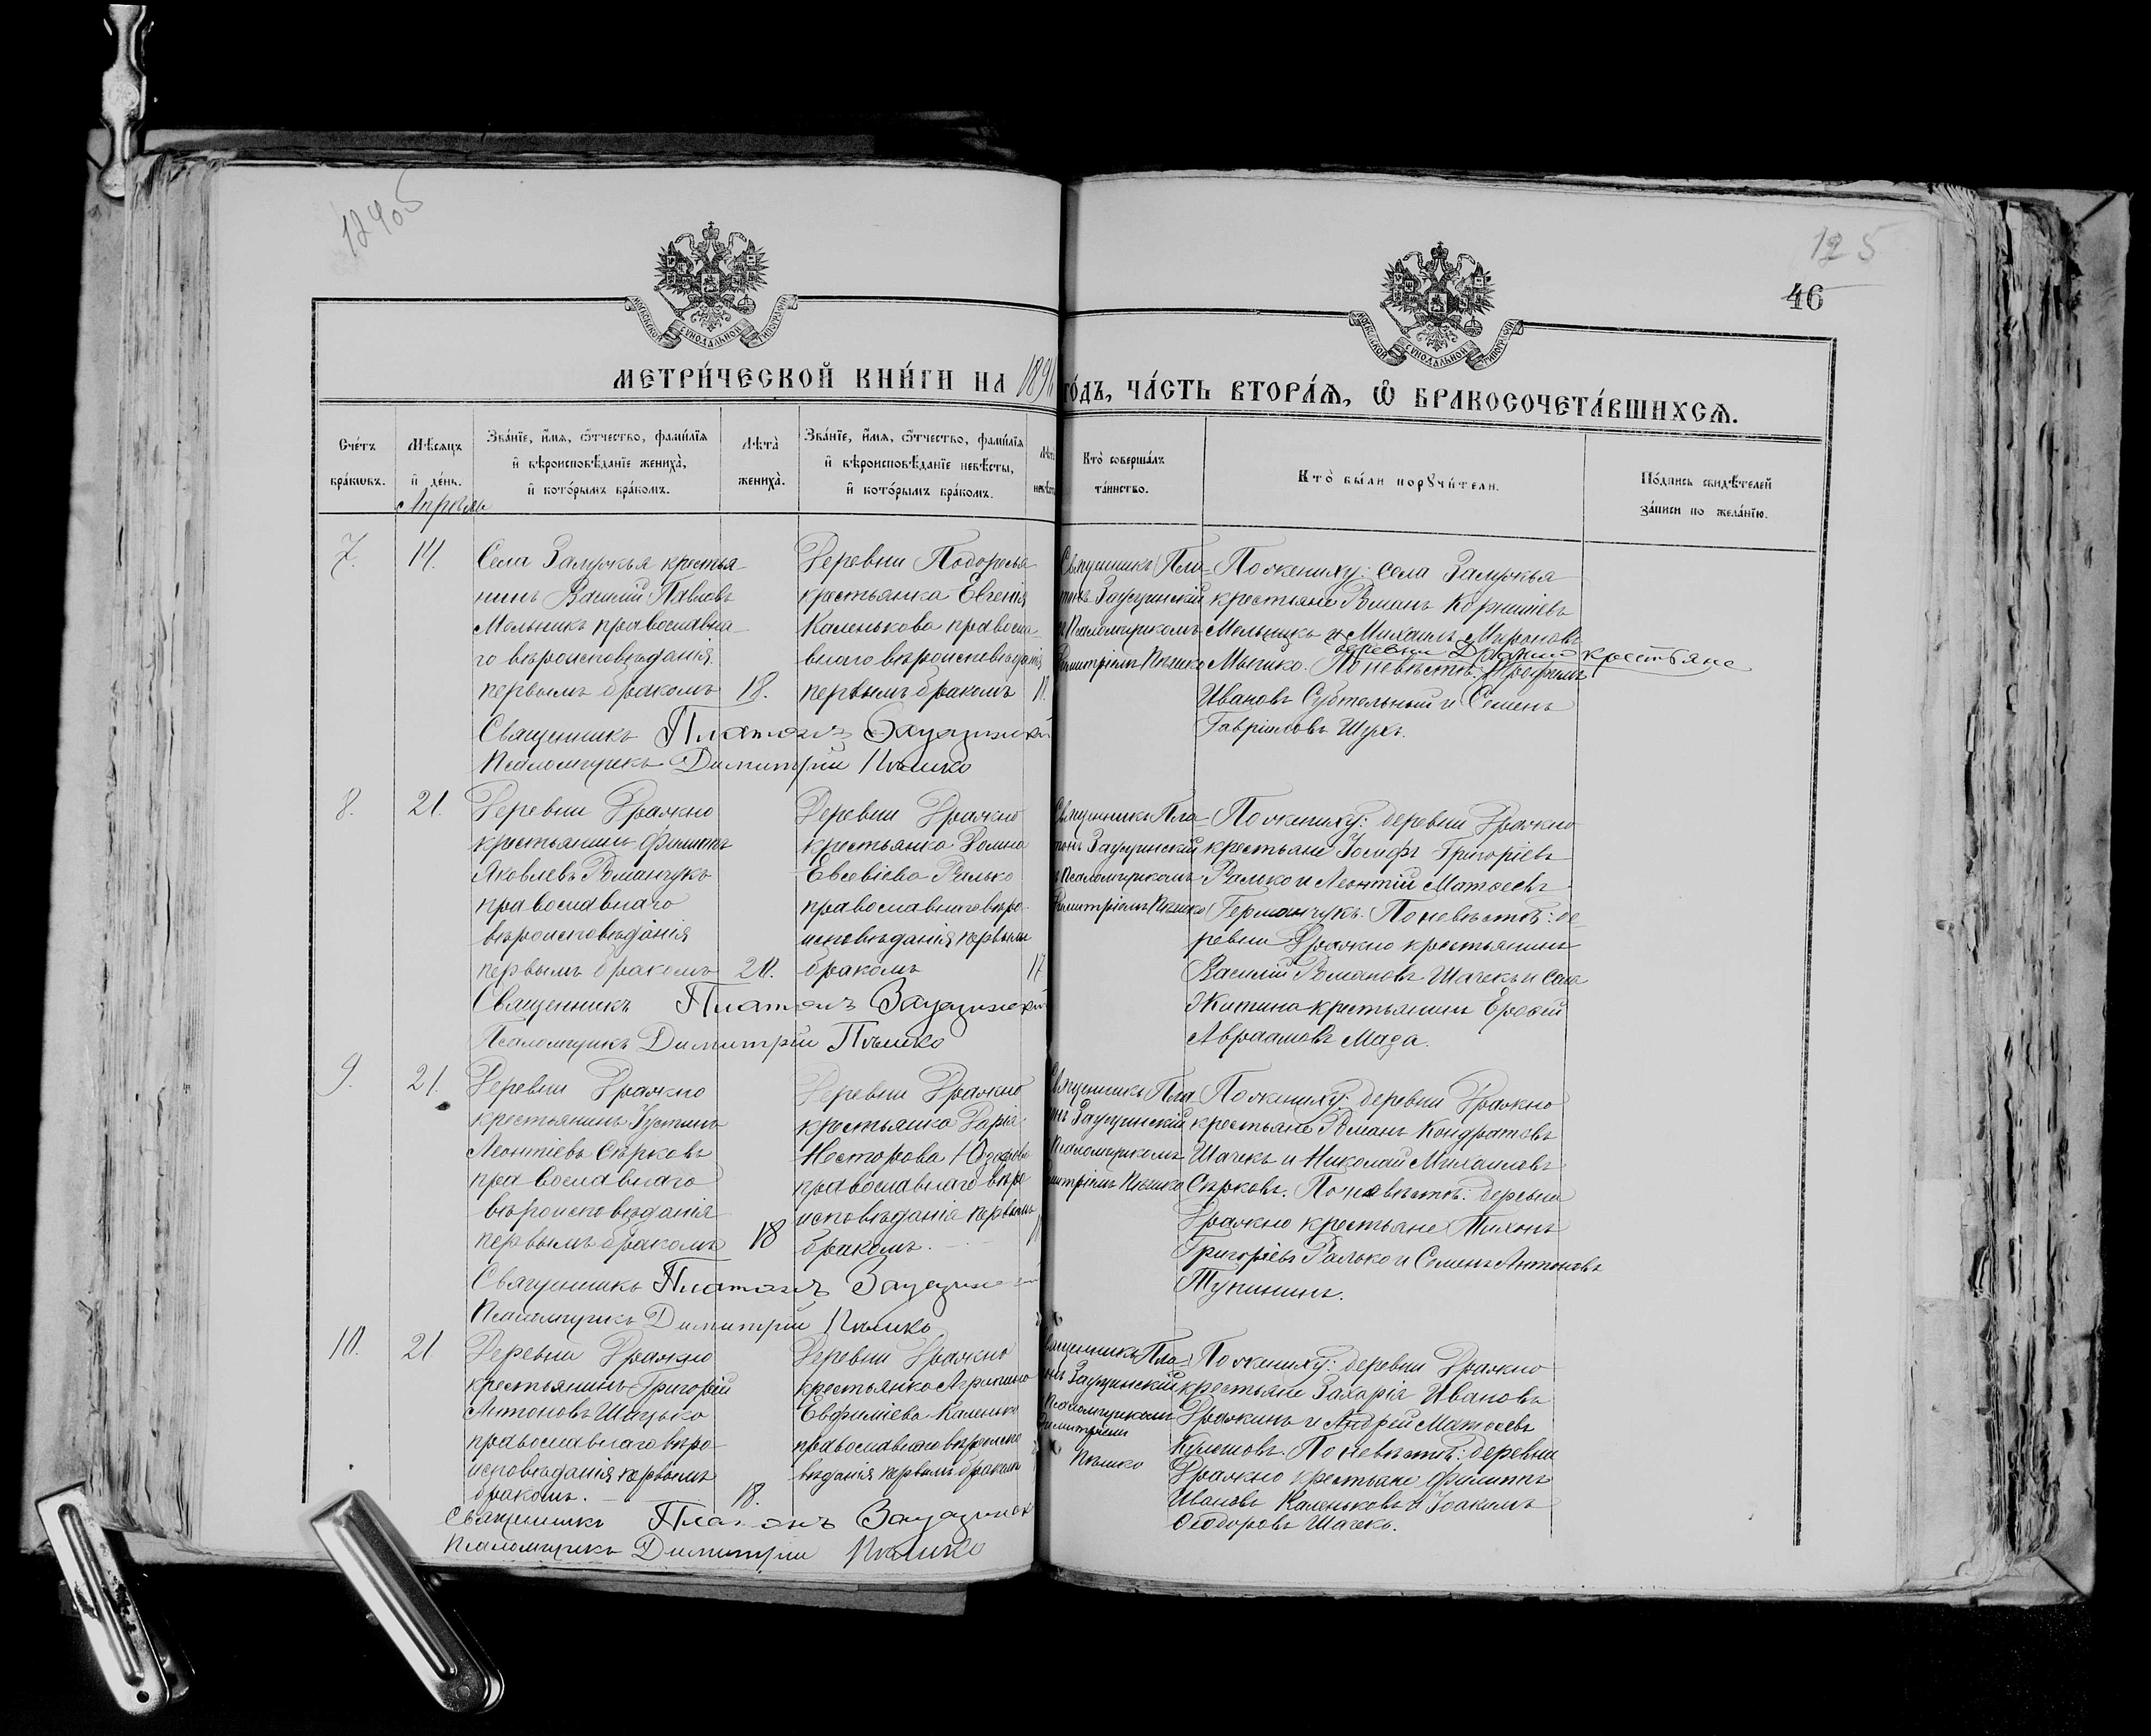 12405
125
46
МОСКОВСКОЙ СУНОДАЛЬНОЙ ТИПОГРАФИИ
МОСКОВСКОЙ СУНОДАЛЬНОЙ ТИПОГРАФИИ
МЕТРИ́ЧЕСКОЙ КНИ́ГИ НА 189
го́дъ, ЧА́СТЬ ВТОРА́Ѧ, Ѡ҆ БРАКОСОЧЕТА́ВШИХСѦ.
Сче́тъ бра́кѡвъ.
Мѣ́сѧцъ и҆ де́нь.
Апрѣль
Зва́нїе, и҆́мѧ, ѻ҆́тчество, фами́лїѧ
и҆ вѣроисповѣ́данїе жениха̀,
и҆ кото́рымъ бра́комъ.
Лѣта̀ жениха̀.
Зва́нїе, и҆́мѧ, ѻ҆́тчество, фами́лїѧ
и҆ вѣроисповѣ́данїе невѣ́сты,
и҆ кото́рымъ бра́комъ.
Кто̀ соверша́лъ та́инство.
Кто̀ бы́ли порꙋчи́тели.
По́дпись свидѣ́телей за́писи по жела́нїю.
7.
14.
Села Залужья крестья-
нинъ Василій Павловъ
Мельникъ православна-
го вѣроисповѣданія
первымъ бракомъ
18.
Деревни
крестьянка Евгенія
Каленькова правосла-
внаго вѣроисповѣданія
первымъ бракомъ
Священникъ Пла-
Псаломщикомъ
Димитріемъ Пѣшко
По жениху: села Залужья
крестьяне Романъ Корниліевъ
Мельникъ и Михаилъ Мироновъ
деревни Дражно крестьяне
Мышко. По невѣстѣ: Трофимъ
Ивановъ Субтельный и Семенъ
Гавріиловъ Шукъ.
Священникъ Платонъ
Псаломщикъ Димитрій Пѣшко
8.
21.
Деревни Дражно
крестьянинъ Филиппъ
Яковлевъ Романчукъ
православнаго
вѣроисповѣданія
первымъ бракомъ
20.
Деревни Дражно
крестьянка Домна
Евсевіева Ралько
православнаго вѣро-
исповѣданія первымъ
бракомъ
17
Священникъ Пла-
Псаломщикомъ
Димитріемъ Пѣшко
По жениху: деревни Дражно
крестьяне Іосифъ Григоріевъ
Ралько и Леонтій Матѳеевъ
Германчукъ. По невѣстѣ: де-
ревни Дражно крестьянинъ
Василій Романовъ Шачекъ и села
Житина крестьянинъ Ерофей
Авраамовъ Мада.
Священникъ Платонъ
Псаломщикъ Димитрій Пѣшко
9.
21.
Деревни Дражно
крестьянинъ Іустинъ
Леонтіевъ Сѣрковъ
православнаго
вѣроисповѣданія
первымъ бракомъ
18
Деревни Дражно
крестьянка Дарія
Несторова
православнаго вѣро-
исповѣданія первымъ
бракомъ.
Священникъ Пла-
Псаломщикомъ
Димитріемъ Пѣшко
По жениху: деревни Дражно
крестьяне Романъ Кондратовъ
Шачекъ и Николай Михаиловъ
Сѣрковъ. По невѣстѣ: деревни
Дражно крестьяне Тихонъ
Григоріевъ Ралько и Семенъ Антоновъ
Тупинин.
Священникъ Платонъ
Псаломщикъ Димитрій Пѣшко
10.
21
Деревни Дражно
крестьянинъ Григорій
Антоновъ
православнаго вѣро-
исповѣданія первымъ
бракомъ.
18.
Деревни Дражно
крестьянка Агрипина
Евфиміева Каленько
православнаго вѣроиспо-
вѣданія первымъ бракомъ
Священникъ Пла-
Псаломщикомъ
Димитріемъ
Пѣшко
По жениху: деревни Дражно
крестьяне Захарія Ивановъ
Дражинъ и Андрей Матѳеевъ
Кулешовъ. По невѣстѣ: деревни
Дражно крестьяне Филиппъ
Ивановъ Каленьковъ и Іоакимъ
Ѳеодоровъ Шачекъ.
Священникъ Платонъ
Псаломщикъ Димитрій Пѣшко